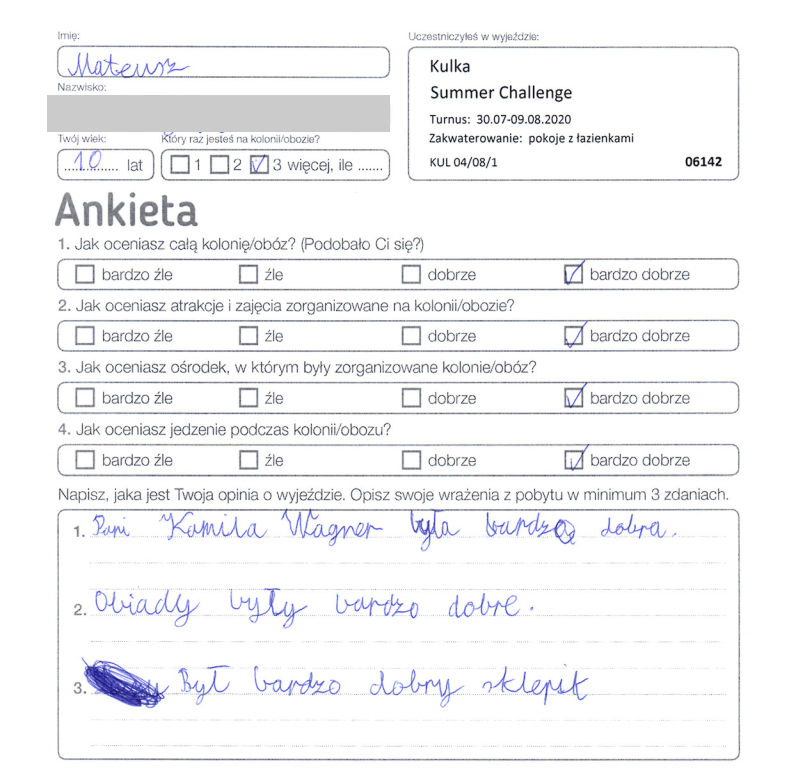 Imię:
Mateusz
Nazwisko:
Twój wiek:
10 lat
Który raz jesteś na kolonii/obozie?
1 2 3 więcej, ile .......
Uczestniczyłeś w wyjeździe:
Kulka
Summer Challenge
Turnus: 30.07-09.08.2020
Zakwaterowanie: pokoje z łazienkami
KUL 04/08/1 06142
Ankieta
1. Jak oceniasz całą kolonię/obóz? (Podobało Ci się?)
bardzo źle źle dobrze bardzo dobrze
2. Jak oceniasz atrakcje i zajęcia zorganizowane na kolonii/obozie?
bardzo źle źle dobrze bardzo dobrze
3. Jak oceniasz ośrodek, w którym były zorganizowane kolonie/obóz?
bardzo źle źle dobrze bardzo dobrze
4. Jak oceniasz jedzenie podczas kolonii/obozu?
bardzo źle źle dobrze bardzo dobrze
Napisz, jaka jest Twoja opinia o wyjeździe. Opisz swoje wrażenia z pobytu w minimum 3 zdaniach.
1. Pani Kamila Wagner była bardzo dobra.
2. Obiady były bardzo dobre.
3. Był bardzo dobry sklepik